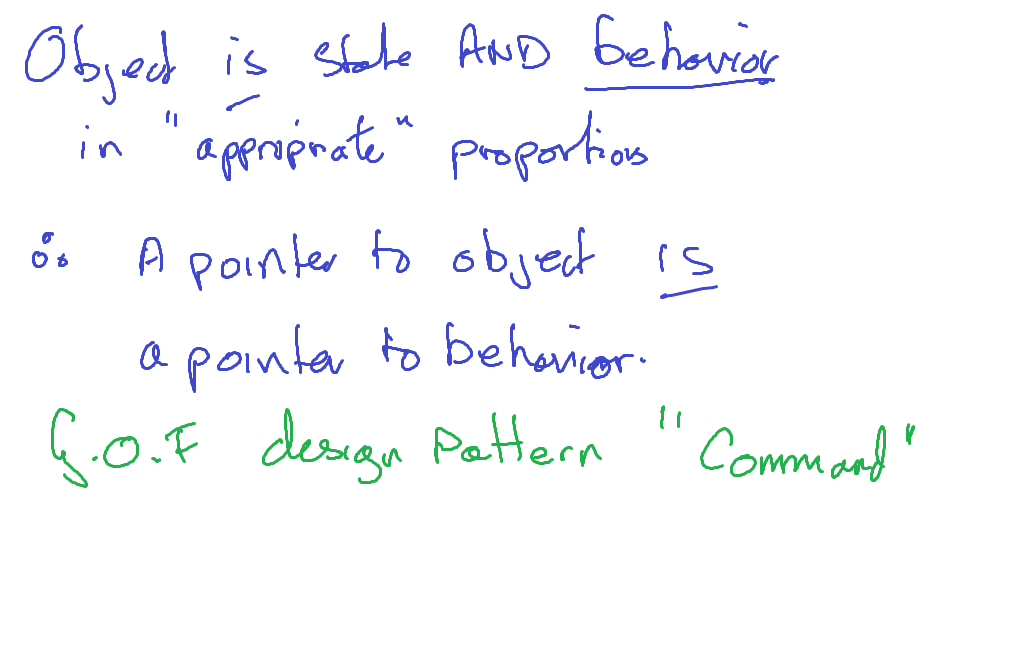 Object is state AND behavior
in "appropriate" proportions
∴ A pointer to object is
a pointer to behavior.
G.O.F design Pattern "Command"